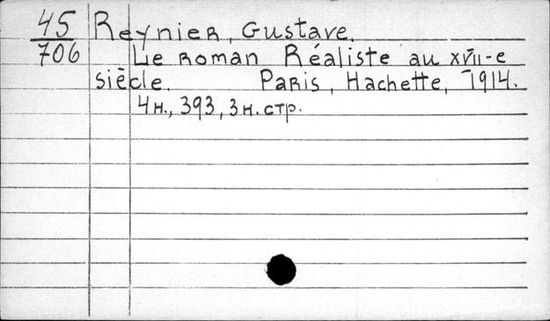 45
706
Reynier, Gustave.
Le roman Réaliste au XVII-e
siècle. Paris, Hachette, 1914.
4н., 393, 3н. стр.